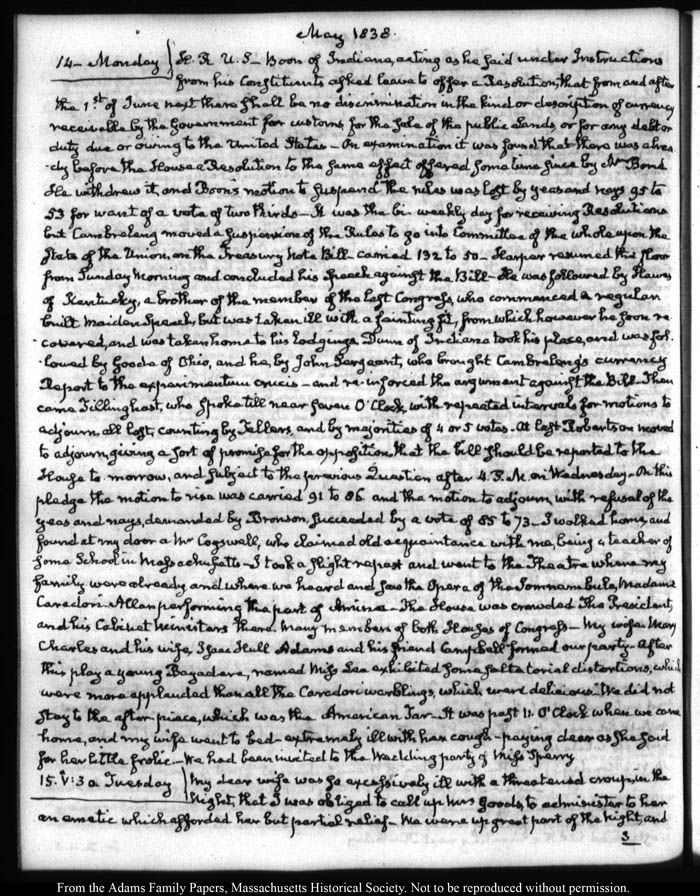 May 1838.
14 – Monday } H. R. U. S – Boon of Indiana, acting as he said under Instructions
from his Constituents asked leave to offer a Resolution, that from and after
the 1st of June next there shall be no discrimination in the kind or description of currency
receivable by the Government for customs, for the sale of the public lands or for any debt or
duty due or owing to the United States – On examination it was found that there was alrea-
-dy before the House a Resolution to the same effect offered some time since by Mr Bond
He withdrew it, and Boon's motion to suspend the rules was lost by yeas and nays 95 to
53 for want of a vote of two thirds – It was the bi-weekly day for receiving Resolutions
but Cambreleng moved a suspension of the Rules to go into Committee of the whole upon the
State of the Union, on the Treasury Note Bill carried 132 to 50 – Harper resumed the floor
from Sunday Morning and concluded his Speech against the Bill – He was followed by Hawes
of Kentucky, a brother of the member of the last Congress, who commenced a regular
built Maiden Speech, but was taken ill with a fainting fit, from which however he soon re-
-covered, and was taken home to his lodgings. Dunn of Indiana took his place, and was fol-
-lowed by Goode of Ohio, and he, by John Sergeant, who brought Cambreleng's currency
Report to the experimentum crucis – and re-inforced the argument against the Bill – Then
came Tillinghast, who spoke till near seven O'Clock, with repeated intervals for motions to
adjourn, all lost, counting by Tellers, and by majorities of 4 or 5 votes. At last Robertson moved
to adjourn, giving a sort of promise for the opposition, that the bill should be reported to the
House to morrow, and subject to the previous Question after 4. P.M. on Wednesday. On this
pledge the motion to rise was carried 91 to 86 and the motion to adjourn, with refusal of the
yeas and nays, demanded by Bronson, succeeded by a vote of 85 to 73 – I walked home, and
found at my door a Mr Cogswell, who claimed old acquaintance with me, being a teacher of
some School in Massachusetts – I took a slight repast and went to the Theatre where my
family were already and where we heard and saw the Opera of the Somnambula, Madame
Caradori Allan performing the part of Amina – The House was crowded The President,
and his Cabinet Ministers there. Many members of both Houses of Congress – My wife Mary
Charles and his wife, Isaac Hull Adams and his friend Campbell formed our party. After
this play a young Bayadere, named Miss Lee exhibited some saltatorial distortions, which
were more applauded than all the Caradori warblings, which were delicious. We did not
stay to the after-piece, which was the American Tar – It was past 11. O'Clock when we came
home, and my wife went to bed – extremely ill with her cough – paying dear as she said
for her little frolic – We had been invited to the Wedding party of Miss Sperry
15. V: 30 Tuesday } My dear wife was so excessively ill with a threatened croup, in the
Night, that I was obliged to call up Mrs Goods to administer to her
an emetic which afforded her but partial relief – We were up great part of the Night, and
3
From the Adams Family Papers, Massachusetts Historical Society. Not to be reproduced without permission.